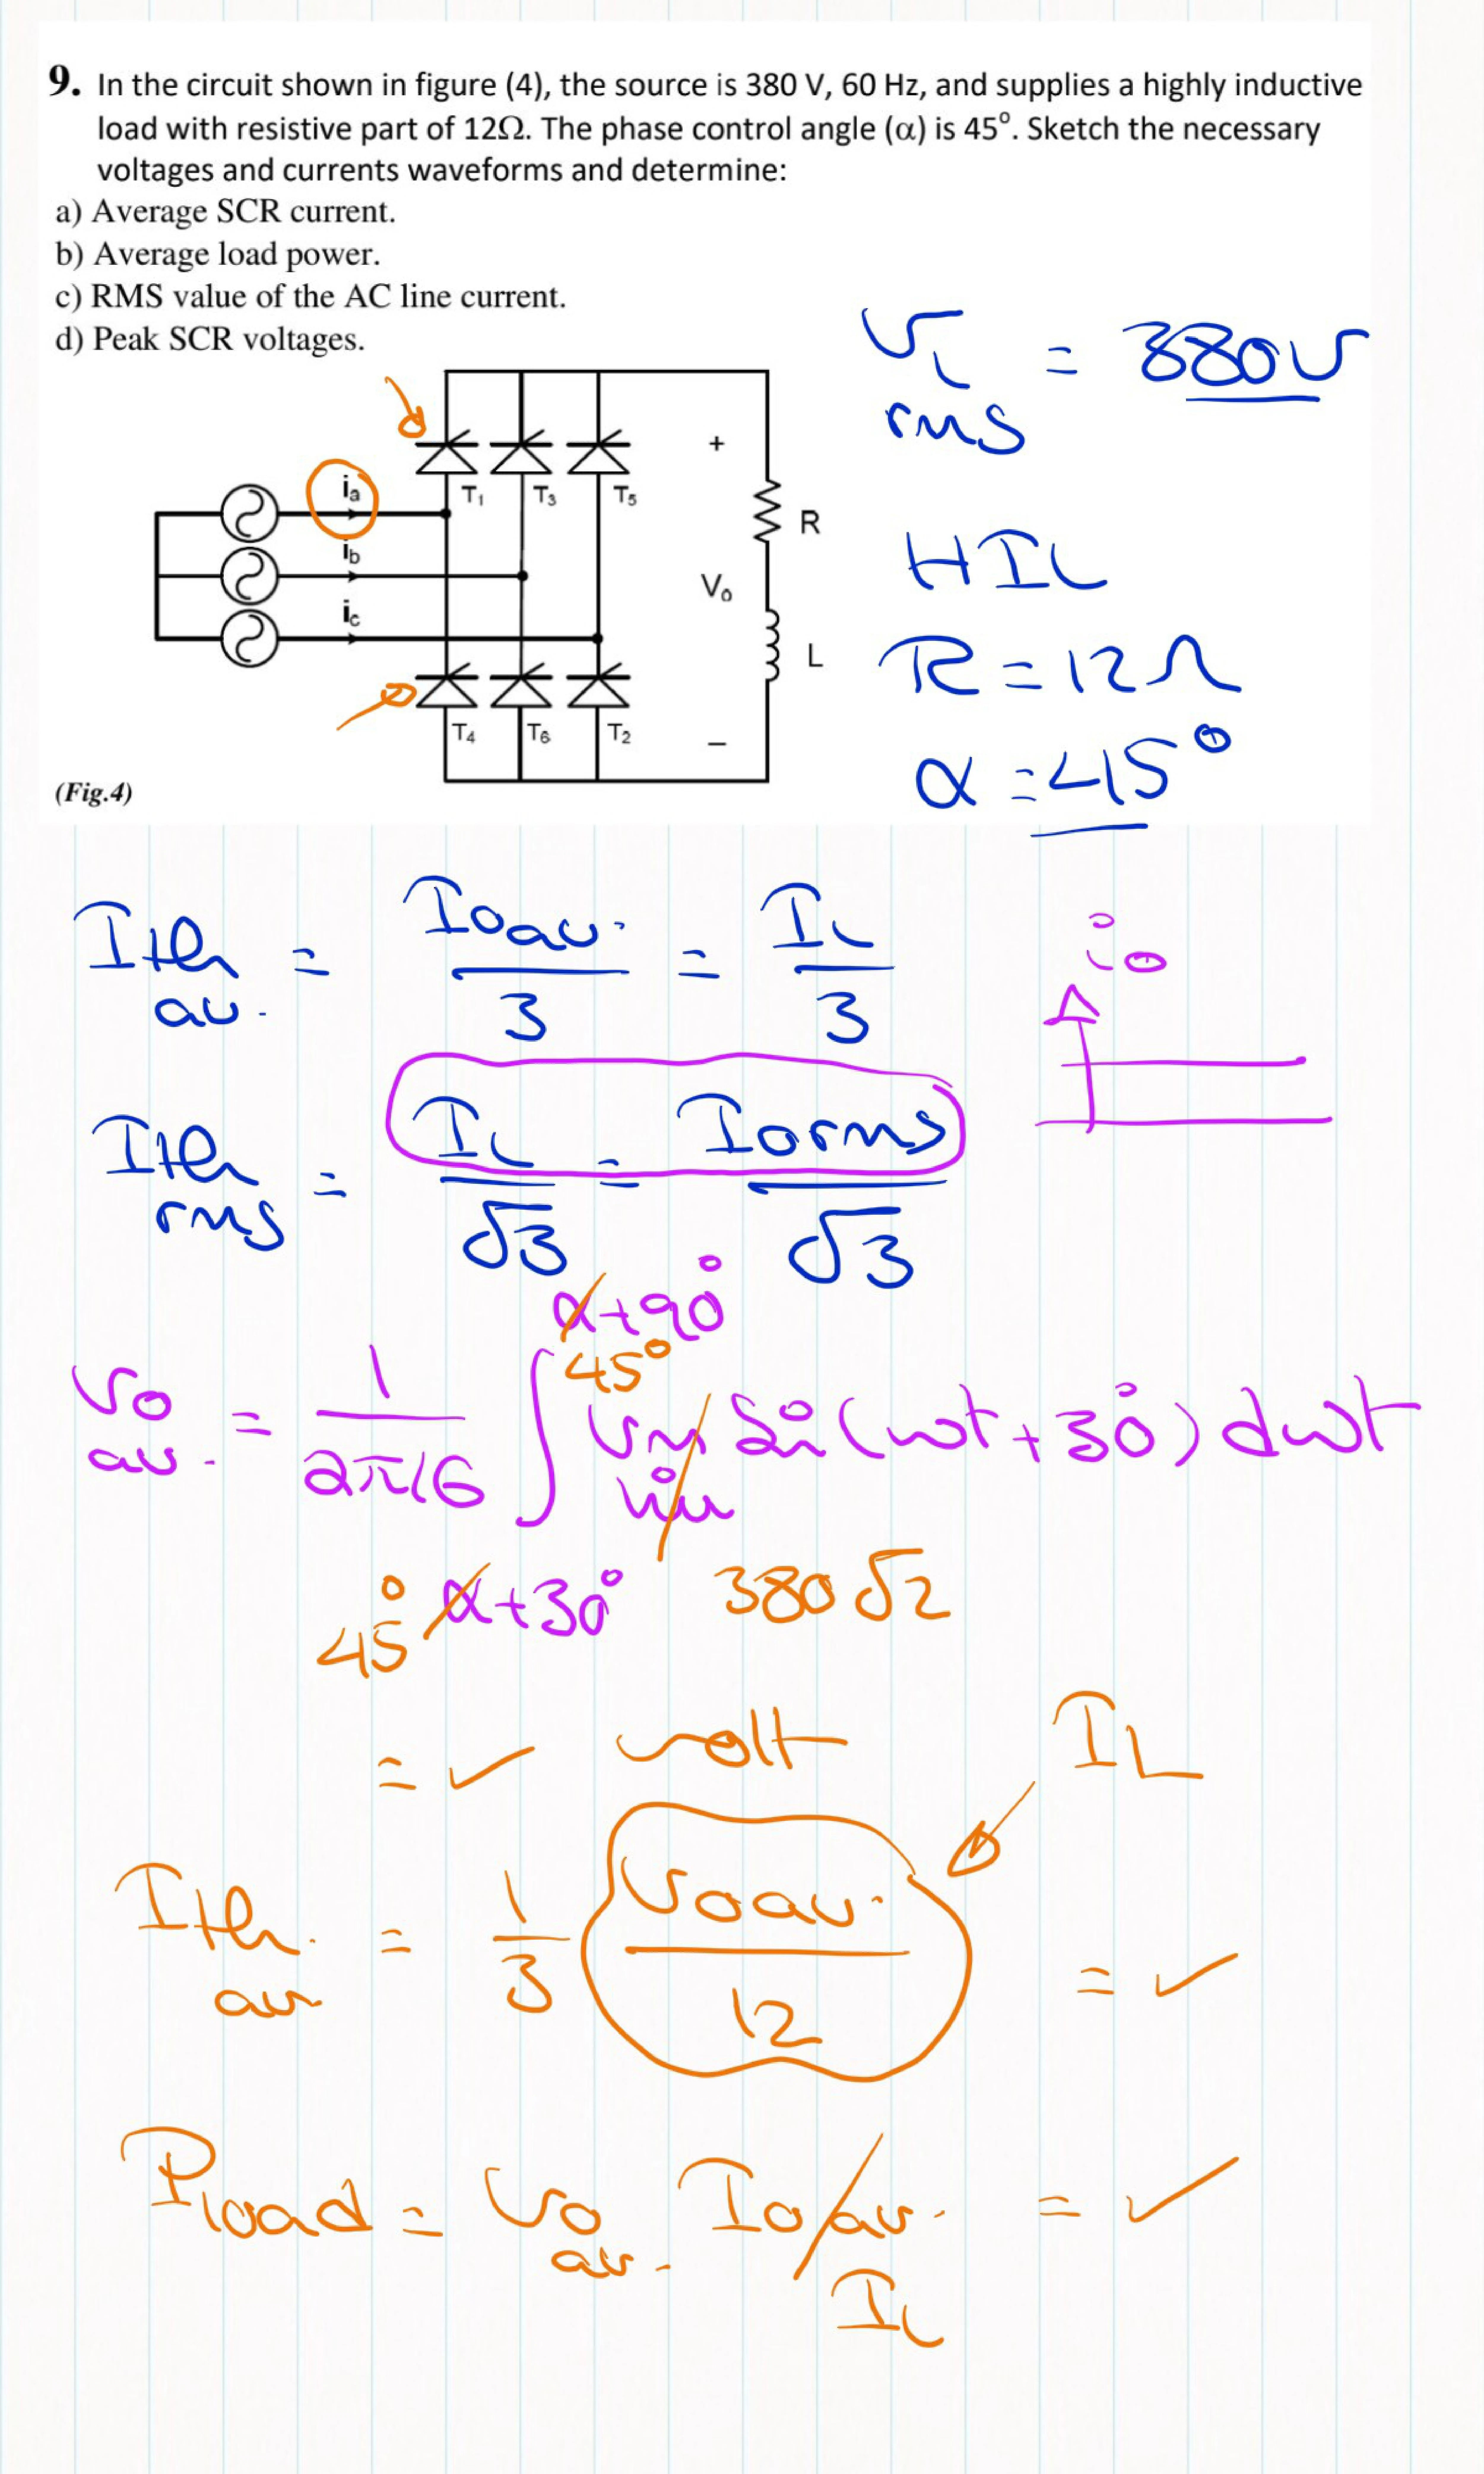 9. In the circuit shown in figure (4), the source is 380 V, 60 Hz, and supplies a highly inductive
load with resistive part of 12Ω. The phase control angle (α) is 45°. Sketch the necessary
voltages and currents waveforms and determine:
a) Average SCR current.
b) Average load power.
c) RMS value of the AC line current.
d) Peak SCR voltages.
V_L rms = 380 V
ia
T1 T3 T5
+
ib
R
HIL
Vo
ic
L
R = 12Ω
T4 T6 T2
–
α = 45°
(Fig.4)
Ith av. = Ioav. / 3 = IL / 3
io
Ith rms = IL / √3 = Iorms / √3
α+90°
45°
Vo av. = 1 / 2π/6 ∫ Vm line Sin(ωt+30°) dωt
45° α+30° 380√2
= ✓ volt
IL
Ith. av = 1/3 Voav. / 12 = ✓
Pload = Vo av. Io av. = ✓
IL